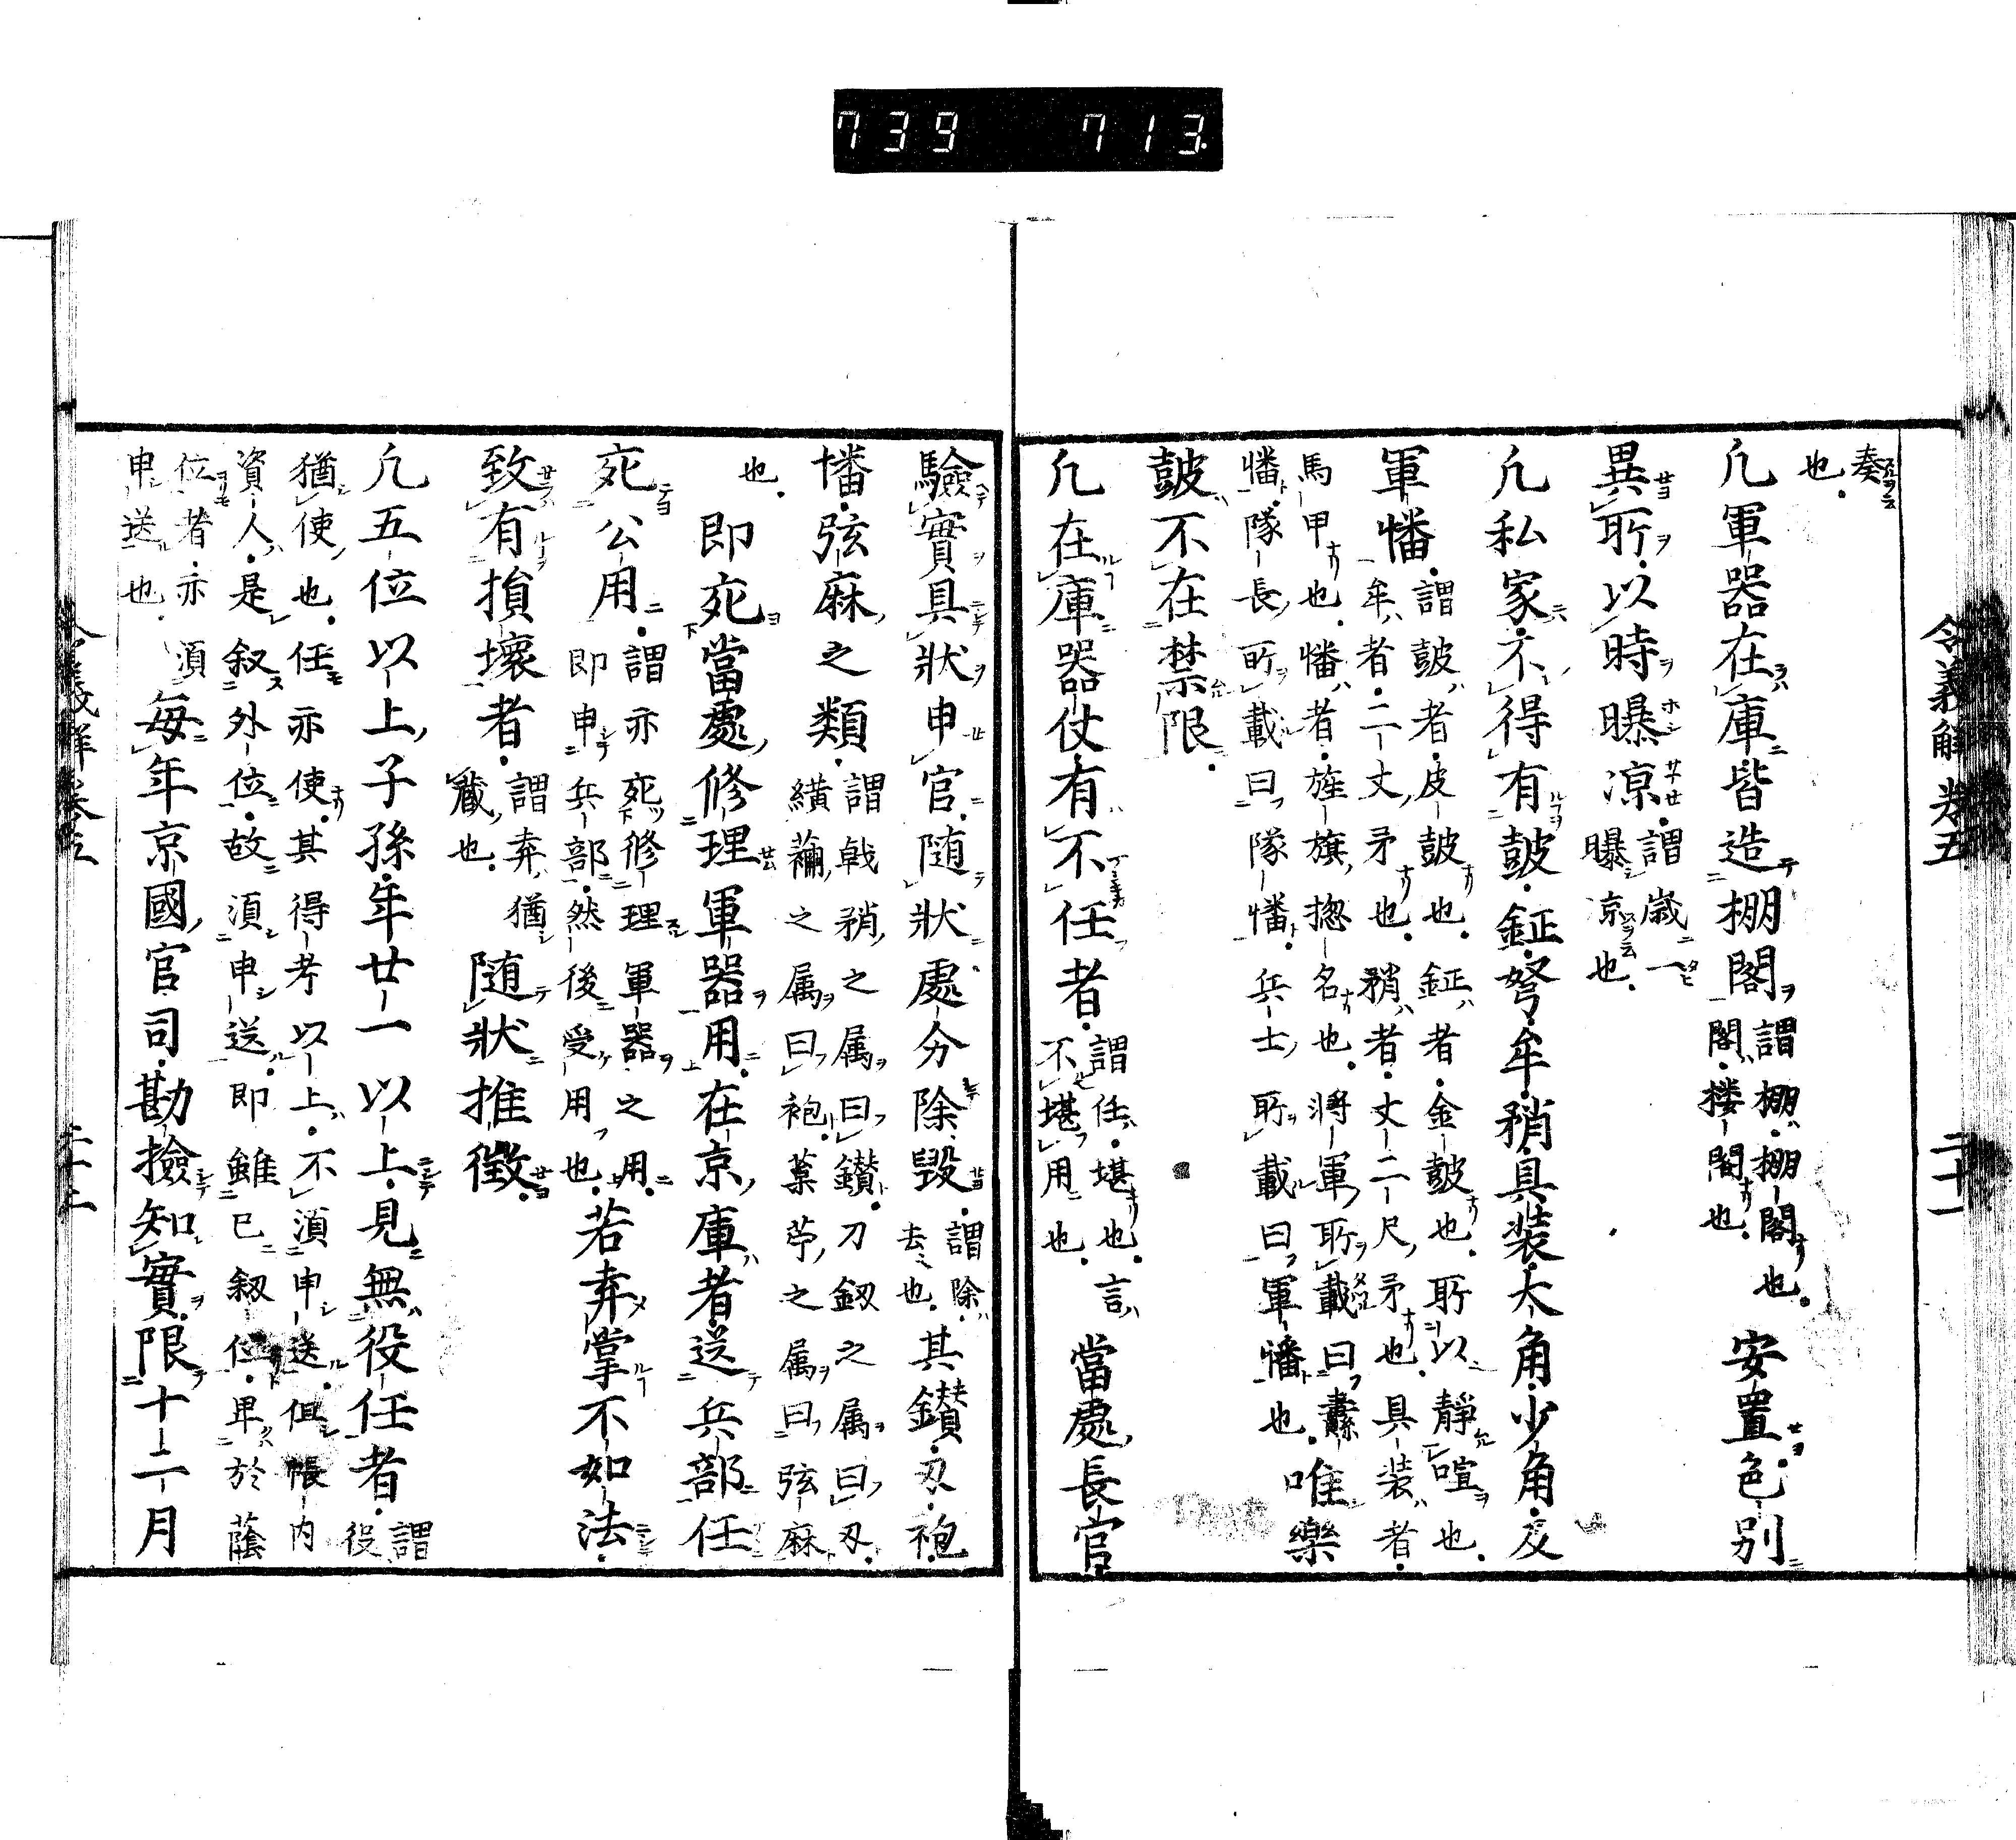 739 713.
令義解巻五 二十一
奏也
凢軍器在庫皆造棚閣謂棚棚閣也閣樓閣也安置色别
異所以時曝凉謂歳一曝凉也
凢私家不得有皷鉦弩牟矟具装大角少角及
軍幡謂皷者皮皷也鉦者金皷也所以静喧也牟者二丈矛也矟者丈二尺矛也具装者
馬甲也幡者旌旗惣名也將軍所載曰纛幡隊長所載曰隊幡兵士所載曰軍幡也唯樂
皷不在禁限
凢在庫器仗有不任者謂任堪也言不堪用也當處長官
驗實具狀申官随狀處分除毀謂除去也其鑚刃袍
幡弦麻之類謂戟矟之属曰鑚刀釼之属曰刃纊襺之属曰袍藁苧之属曰弦麻
也即充當處修理軍器用在京庫者送兵部任
充公用謂亦充修理軍器之用即申兵部然後受用也若弃掌不如法
致有損壞者謂弃猶藏也随狀推徵
凢五位以上子孫年廿一以上見無役任者謂役
猶使也任亦使其得考以上不湏申送但帳内
資人是叙外位故湏申送即雖已叙位卑於蔭
位者亦湏申送也毎年京國官司勘撿知實限十二月